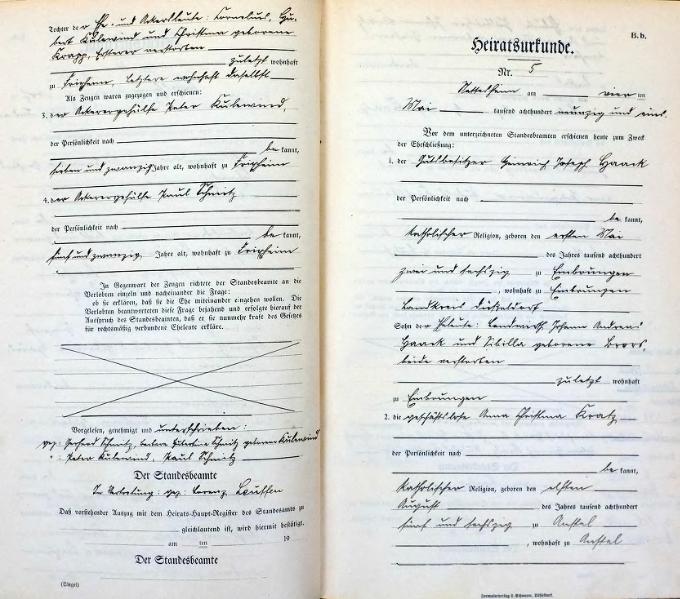 Tochter der Ehe- und Ackersleute: Cornelius, Hu-
bert Külewind und Christina geborene
Krapp, Ersterer verstorben
zuletzt wohnhaft
zu Frixheim, Letztere wohnhaft daselbst
Als Zeugen waren zugezogen und erschienen:
3. der Ackerergehülfe Peter Külewind,
der Persönlichkeit nach
be kannt,
sieben und zwanzig Jahre alt, wohnhaft zu Frixheim
4. der Ackerergehülfe Paul Schmitz
der Persönlichkeit nach
be kannt,
fünf und zwanzig Jahre alt, wohnhaft zu Frixheim
In Gegenwart der Zeugen richtete der Standesbeamte an die
Verlobten einzeln und nacheinander die Frage:
ob sie erklären, daß sie die Ehe miteinander eingehen wollen. Die
Verlobten beantworteten diese Frage bejahend und erfolgte hierauf der
Ausspruch des Standesbeamten, daß er sie nunmehr kraft des Gesetzes
für rechtmäßig verbundene Eheleute erkläre.
Vorgelesen, genehmigt und unterschrieben:
gez: Gerhard Schmitz, Schmitz geborene Külewind
" : Peter Külewind, Paul Schmitz
Der Standesbeamte
In Vertretung gez. Lorenz
Daß vorstehender Auszug mit dem Heirats-Haupt-Register des Standesamts zu
gleichlautend ist, wird hiermit bestätigt.
am ten 19
Der Standesbeamte
(Siegel)
B. b.
Heiratsurkunde.
Nr. 5
Nettesheim am vier ten
Mai tausend achthundert neunzig und eins.
Vor dem unterzeichneten Standesbeamten erschienen heute zum Zweck
der Eheschließung:
1. der Gutsbesitzer Heinrich Joseph Haack
der Persönlichkeit nach
be kannt,
katholischer Religion, geboren den ersten Mai
des Jahres tausend achthundert
zwei und sechszig zu Embrüngen
, wohnhaft zu Embrüngen
Landkreis Düsseldorf
Sohn der Eheleute: Landwirth Johann Andreas
Haack und Sibilla geborene
beide verstorben
zuletzt wohnhaft
zu Embrüngen
2. die geschäftslose Anna Christina Kratz
der Persönlichkeit nach
be kannt,
katholischer Religion, geboren den elften
August des Jahres tausend achthundert
fünf und sechszig zu Anstel
, wohnhaft zu Anstel
Formularverlag L. Schwann, Düsseldorf.